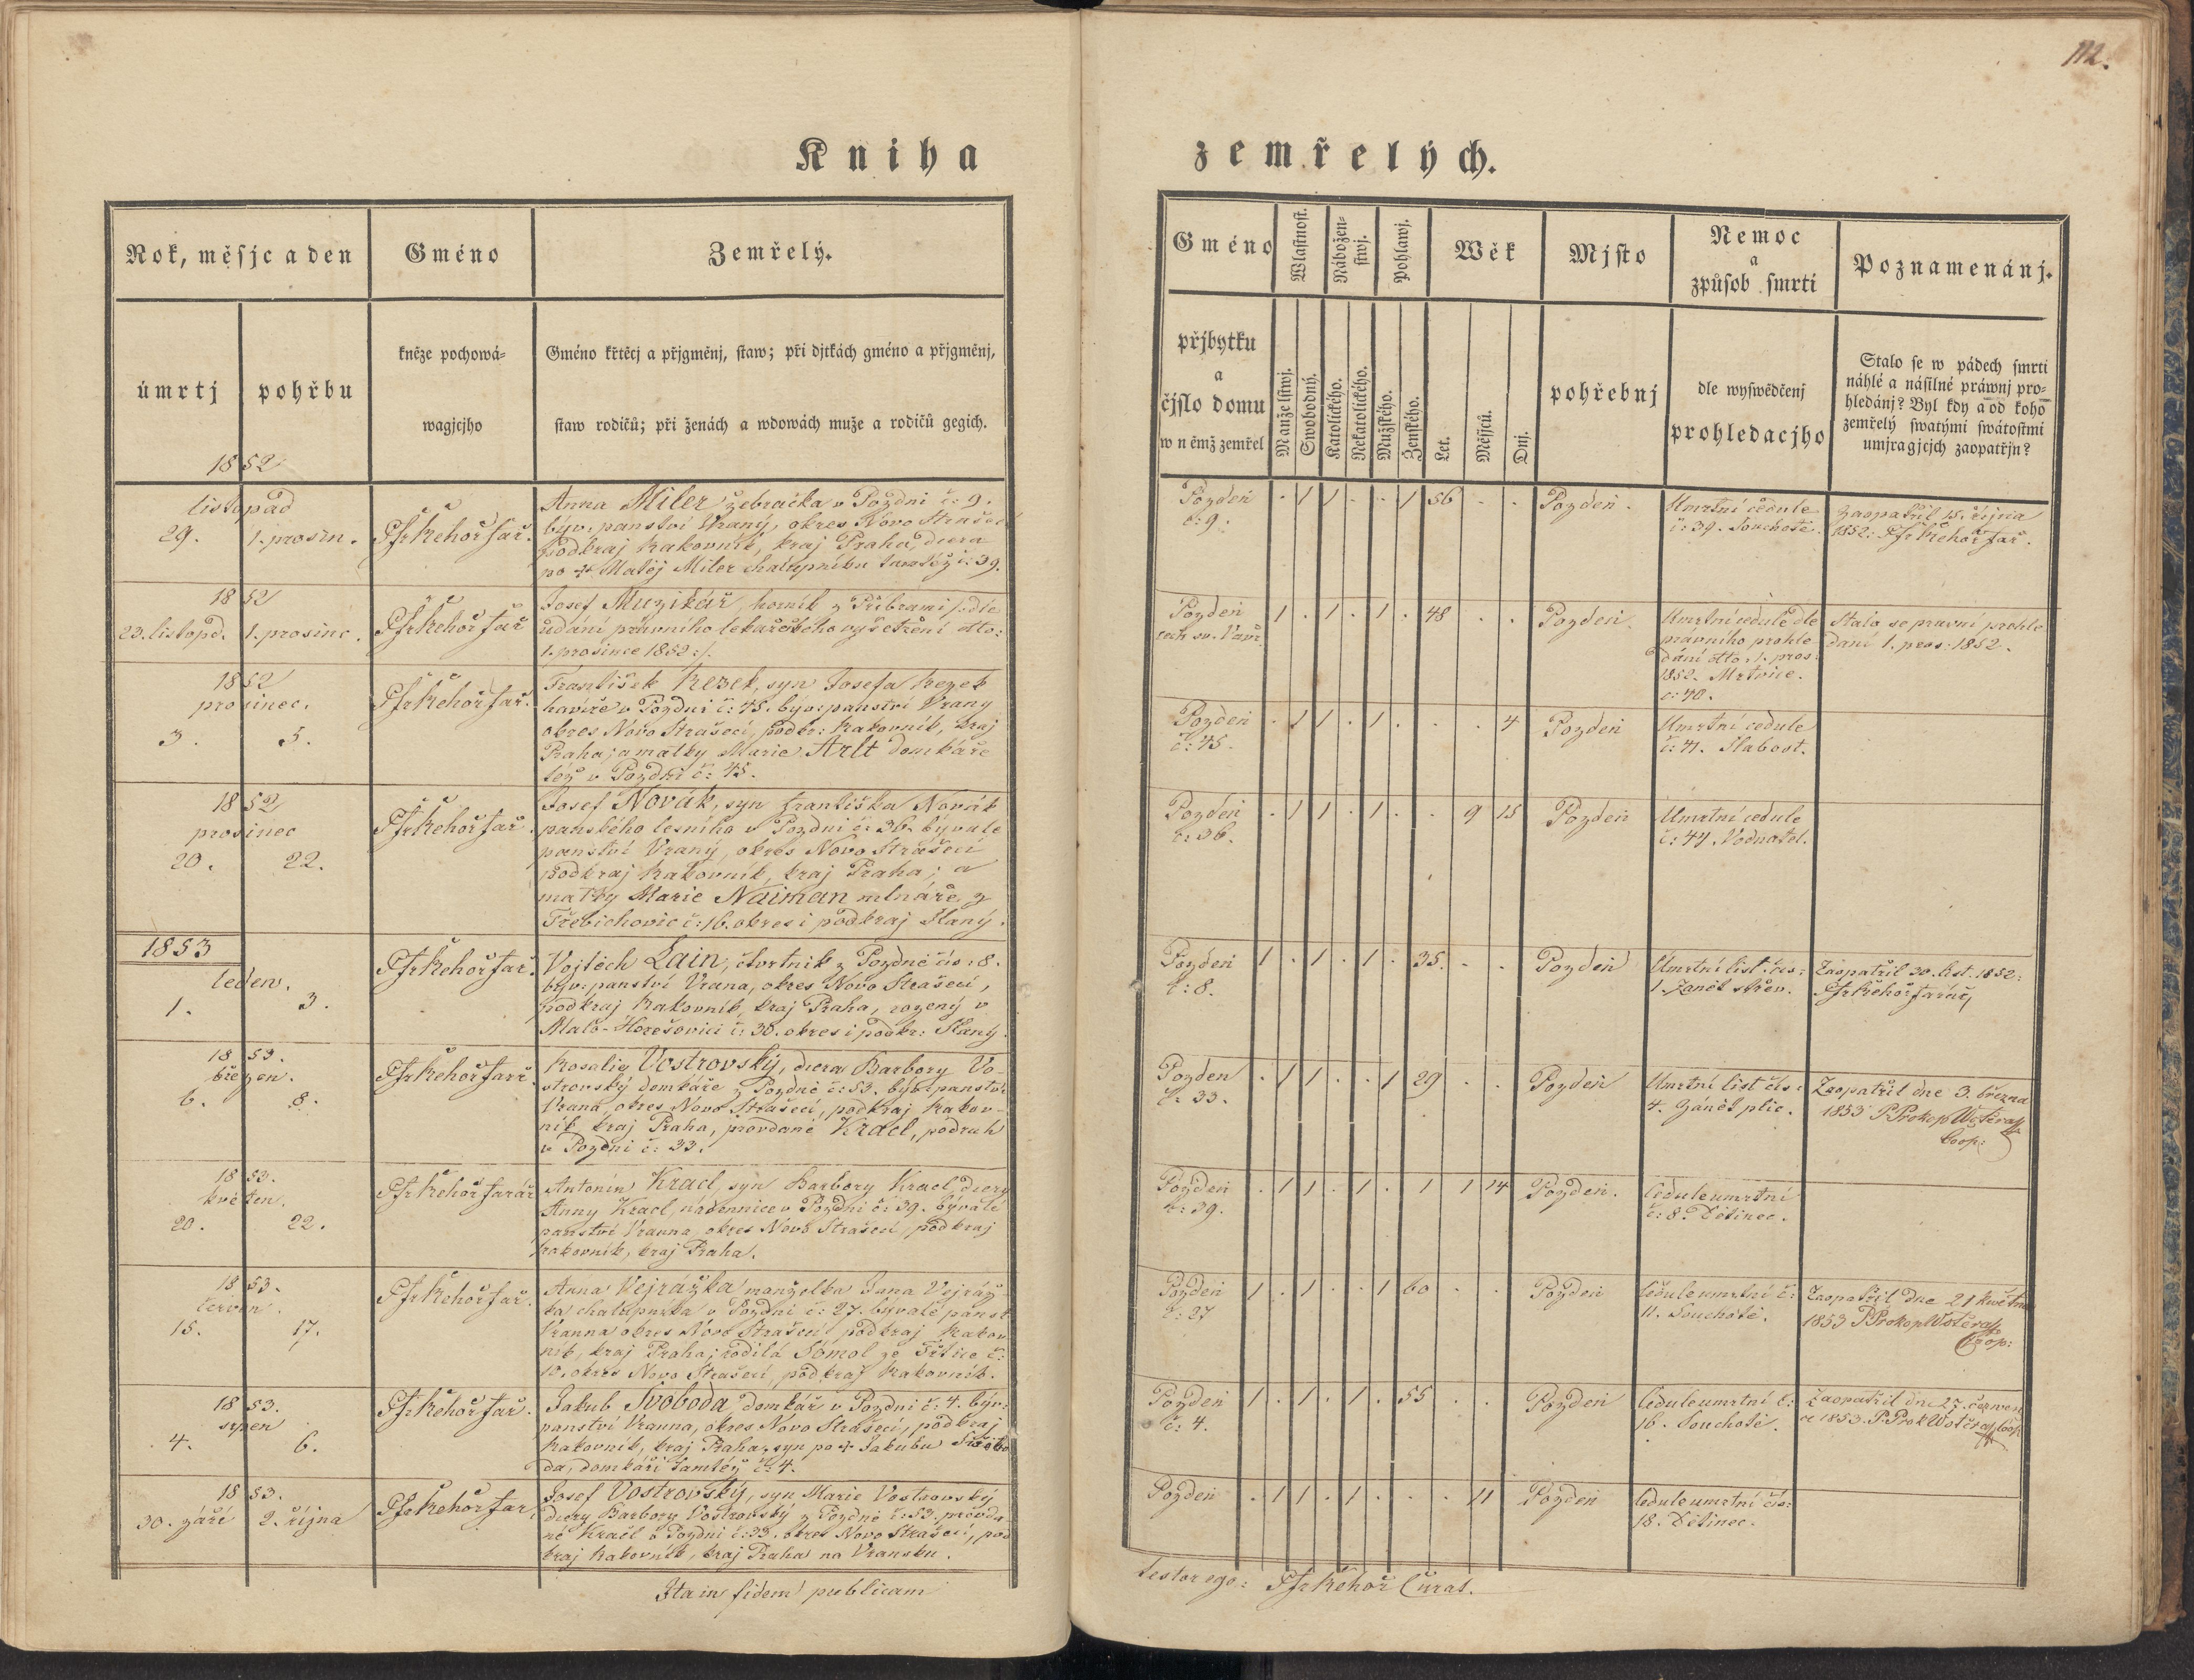 112.
Kniha
zemřelých.
Rok, měsjc a den
Gméno
Zemřelý.
úmrtj
pohřbu
kněze pochowá-
wagjcjho
Gméno křtěcj a přjgměnj, staw; při djtkách gméno a přjgměnj,
staw rodičů; při ženách a wdowách muže a rodičů gegich.
1852
listopad
29. 1. prosin.
P Fr Řehoř far.
Anna Miler žebračka v Pozdni č: 9.
býv. panství Vraný, okres Novo Strašecí
podkraj Rakovník, kraj Praha, dcera
po + Matěj Miler chalupníku tamtéž č: 39.
1852
23. listopd. 1. prosinc.
P Fr Řehoř far
Josef Muzikář, horník z Příbrami /: dle
udání právního lekařského vyšetření dto:
1. prosince 1852 :/.
1852
prosinec.
3. 5.
P Fr Řehoř far.
František Rezek, syn Josefa Rezek
havíře v Pozdni č: 45. býv: panství Vraný
okres Novo Strašecí, podkr: Rakovník, kraj
Praha; a matky Marie Arlt domkáře
též v Pozdni č: 45.
1852
prosinec
20. 22.
P Fr Řehoř far.
Josef Novák, syn Františka Novák
panského lesního v Pozdni č: 36. bývalé
panství Vraný, okres Novo Strašecí
podkraj Rakovník, kraj Praha; a
matky Marie Naiman mlnáře z
Třebichovic č: 16. okres i podkraj Slaný.
1853
leden.
1. 3.
P Fr Řehoř far.
Vojtěch Lain, čtvrtník z Pozdně čís: 8.
býv: panství Vrana, okres Novo Strašecí,
podkraj Rakovník, kraj Praha, rozený v
Malo-Horešovici č: 30. okres i podkr: Slaný.
1853.
březen.
6. 8.
P Fr Řehoř farř.
Rosalie Vostrovský, dcera Barbory Vo-
strovský domkáře z Pozdně č: 53. býv: panství
Vrana, okres Novo Strašecí, podkraj Rakov-
ník, kraj Praha, provdané Kracl, podruh
v Pozdni č: 33.
1853.
květen.
20. 22.
P Fr Řehoř farář
Antonín Kracl, syn Barbory Kracl dcery
Anny Kracl, nádennice v Pozdni č: 39. bývalé
panství Vranna, okres Novo Strašecí, podkraj
Rakovník, kraj Praha.
1853.
červen.
15. 17.
P Fr Řehoř far.
Anna Vejražka manželka Jana Vejráž-
ka chalupníka v Pozdni č: 27. bývalé panst.
Vranna okres Novo Strašecí podkraj Rakov
ník, kraj Praha; rodilá Somol ze Třtice č:
10. okres Novo Strašecí, podkraj Rakovník.
1853.
srpen
4. 6.
P Fr Řehoř far.
Jakub Svoboda, domkář v Pozdni č: 4. býv:
panství Vranna, okres Novo Strašecí, podkraj
Rakovník, kraj Praha, syn po + Jakubu Svobo
da, domkáři tamtéž č: 4.
1853.
30. září 2. října
P Fr Řehoř far
Josef Vostrovský, syn Marie Vostrovský
dcery Barbory Vostrovský z Pozdně č: 53. provda
né Kracl v Pozdni č: 33. okres Novo Strašecí, pod
kraj Rakovník, kraj Praha na Vransku.
Ita in fidem publicam
Gméno
přjbytku
a
čjslo domu
w němž zemřel
Wlastnost.
Manželstwj.
Swobodný.
Nábožen-
stwj.
Katolického.
Nekatolického.
Pohlawj.
Mužského.
Ženského.
Wěk
Let.
Měsjců.
Dnj.
Mjsto
pohřebnj
Nemoc
a
způsob smrti
dle wyswědčenj
prohledacjho
Poznamenánj.
Stalo se w pádech smrti
náhlé a násilné práwnj pro-
hledánj? Byl kdy a od koho
zemřelý swatými swátostmi
umjragjcjch zaopatřjn?
Pozdeň . 1 1 . . 1 56 . . Pozdeň.
č: 9.
Umrtní cedule
č: 39. Souchotě.
Zaopatřil 15. října
1852: P Fr Řehoř far.
Pozdeň 1 . 1 . 1 . 48 . . Pozdeň.
cech sv. Vavř.
Umrtní cedule dle
pravního prohle
dání dto: 1. pros:
1852. Mrtvice.
č: 40.
Stalo se pravní prohle
daní 1. pros: 1852.
Pozdeň . 1 1 . 1 . . . 4 Pozdeň
č: 45.
Umrtní cedule
č: 41. Slabost.
Pozdeň . 1 1 . 1 . . 9 15 Pozdeň
č: 36.
Umrtní cedule
č: 44. Vodnatel.
Pozdeň 1 . 1 . 1 . 35. . . Pozdeň
č: 8.
Umrtní list čís:
1. Zánět střev.
Zaopatřil 30. list. 1852:
P Fr Řehoř farář
Pozden . 1 1 . . 1 29 . . Pozdeň
č: 33.
Umrtní list čís:
4. Zánět plic.
Zaopatřil dne 3. března
1853 P. Prokop Wotěra
Coop:
Pozdeň . 1 1 . 1 . 1 1 14 Pozdeň.
č: 39.
Cedule umrtní
č: 8. Dětinec.
Pozdeň 1 . 1 . . 1 60 . . Pozdeň
č: 27
Cedule umrtní č:
11. Souchotě.
Zaopatřil dne 21 května
1853 P Prokop Wotěra
Coop:
Pozdeň 1 . 1 . 1 . 55 . . Pozdeň
č: 4.
Cedule umrtní č:
16. Souchotě.
Zaopatřil dne 27. červen
ce 1853. P. Prok Wotěra coop
Pozdeň . 1 1 . 1 . . . 11 Pozdeň
Cedule umrtní čís:
18. Dětinec.
testor ego: P Fr Řehoř Curat.